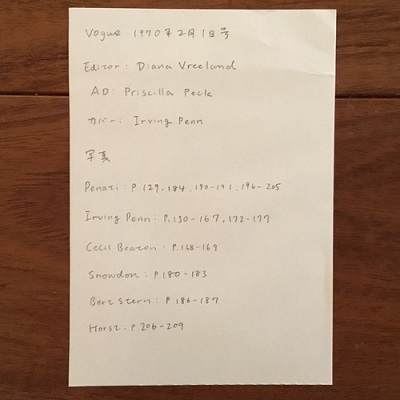 Vogue 1970年2月1日号
Editor: Diana Vreeland
AD: Priscilla Peck
カバー: Irving Penn
写真
Penati: P 129, 184, 190-191, 196-205
Irving Penn: P. 150-167, 172-177
Cecil Beaton: P. 168-169
Snowdon: P 180-183
Bert Stern: P 186-187
Horst: P 206-209